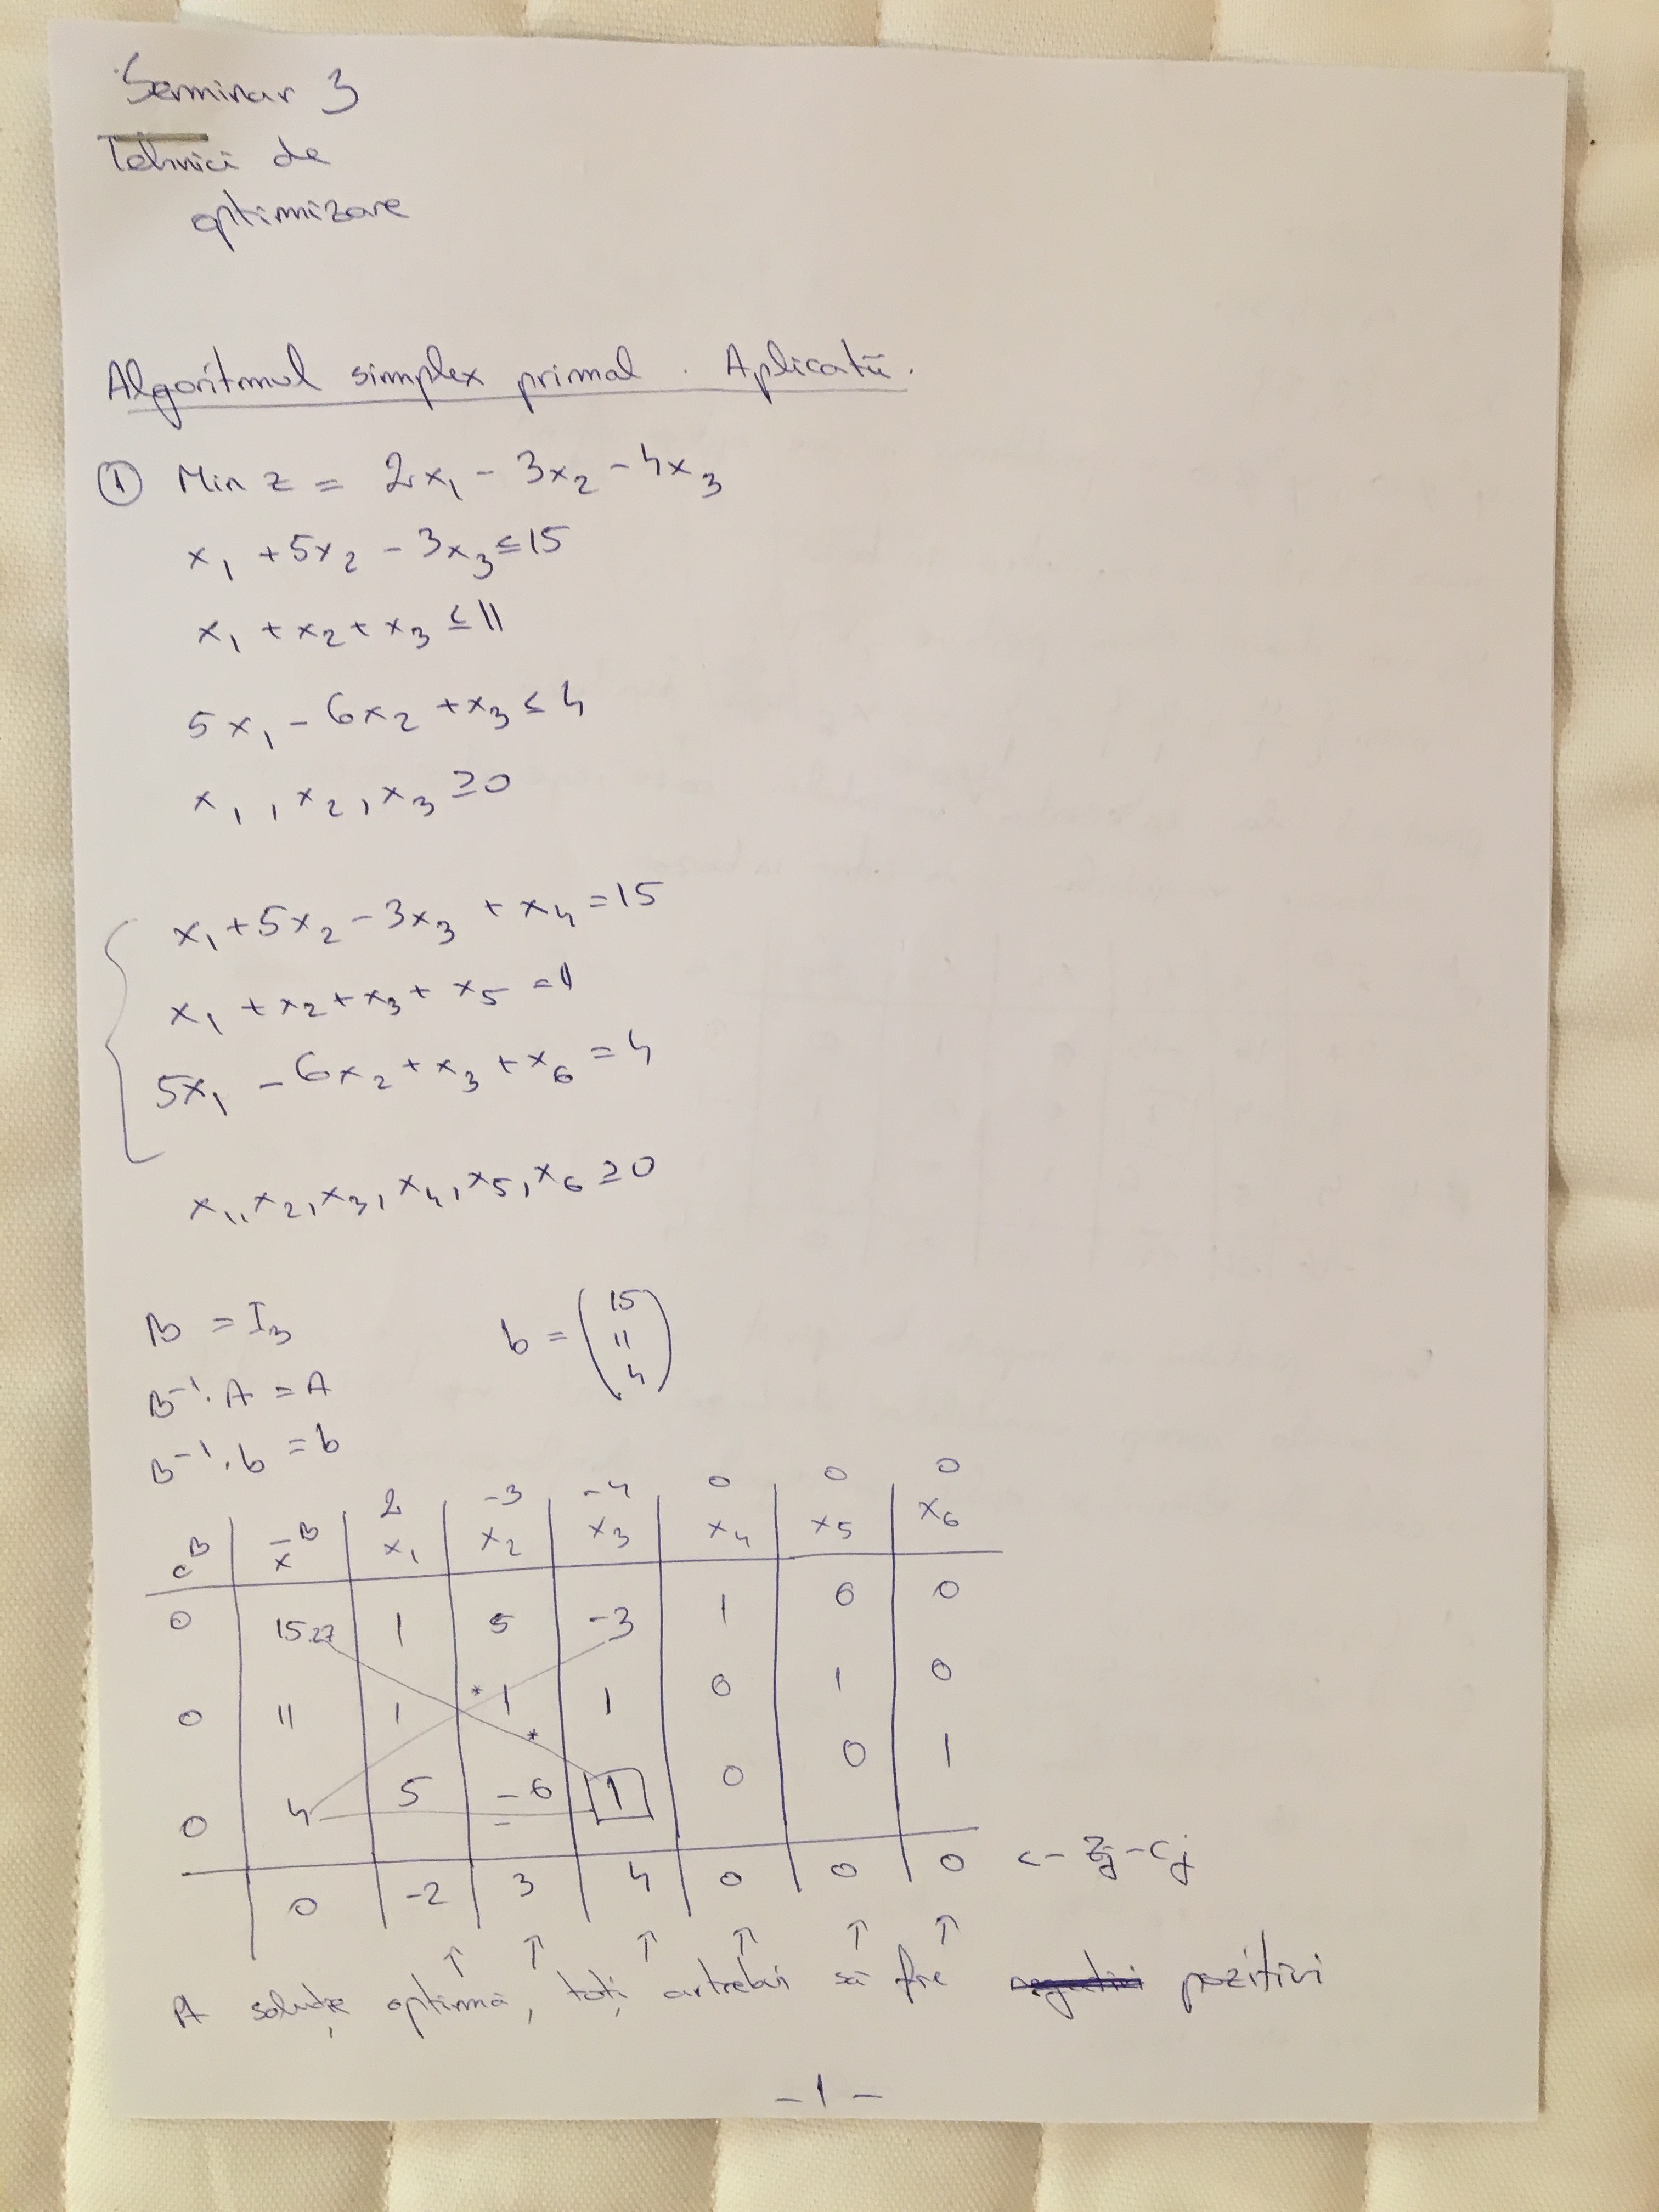 Seminar 3
Tehnici de
optimizare
Algoritmul simplex primal. Aplicații.
① Min z = 2x₁ - 3x₂ - 4x₃
x₁ + 5x₂ - 3x₃ ≤ 15
x₁ + x₂ + x₃ ≤ 11
5x₁ - 6x₂ + x₃ ≤ 4
x₁, x₂, x₃ ≥ 0
x₁ + 5x₂ - 3x₃ + x₄ = 15
x₁ + x₂ + x₃ + x₅ = 11
5x₁ - 6x₂ + x₃ + x₆ = 4
x₁, x₂, x₃, x₄, x₅, x₆ ≥ 0
B = I₃
B⁻¹·A = A
B⁻¹·b = b
b = (15 11 4)
2 -3 -4 0 0 0
cᴮ x̄ᴮ x₁ x₂ x₃ x₄ x₅ x₆
0 15 27 1 5 -3 1 0 0
0 11 1 *1 1 0 1 0
*
0 4 5 -6 1 0 0 1
0 -2 3 4 0 0 0 <- zj - cj
↑ ↑ ↑ ↑ ↑ ↑
A soluție optimă, toți ar trebui să fie pozitivi
- 1 -